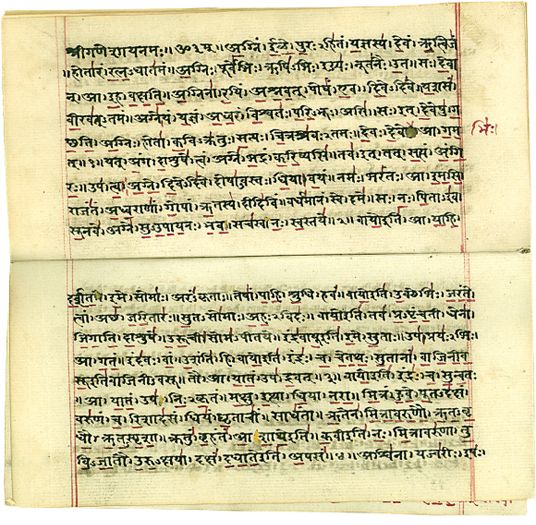 श्रीगणेशायनमः॥ॐ३म्॥अग्निं।ईळे।पुरःऽहितं।यज्ञस्य।देवं।ऋत्विजं
।होतारं।रत्नऽधातमं॥अग्निः।पूर्वेभिः।ऋषिऽभिः।ईड्यः।नूतनैः।उत॥सः।देवा
न्।आ।इह।वक्षति॥अग्निना।रयिं।अश्नवत्।पोषं।एव।दिवेऽदिवे॥यशसं।
वीरवत्ऽतमं॥अग्ने।यं।यज्ञं।अध्वरं।विश्वतः।परिऽभूः।असि॥सः।इत्।देवेषु।ग
च्छति॥अग्निः।होता।कविऽक्रतुः।सत्यः।चित्रश्रवःऽतमः॥देवः।देवे।आ।गम भिः।
त्॥१॥यत्।अंग।दाशुषे।त्वं।अग्ने।भद्रं।करिष्यसि॥तव।इत्।तत्।सत्यं।अंगि
रः॥उप।त्वा।अग्ने।दिवेऽदिवे।दोषाऽवस्तः।धिया।वयं॥नमः।भरंतः।आ।इमसि॥
राजंतं।अध्वराणां।गोपां।ऋतस्य।दीदिविं॥वर्धमानं।स्वे।दमे॥सः।नः।पिताऽइव।
सूनवे।अग्ने।सुऽउपायनः।भव॥सचस्व।नः।स्वस्तये॥२॥वायोइति।आ।याहि।
दर्शत।इमे।सोमाः।अरंऽकृताः॥तेषां।पाहि।श्रुधि।हवं॥वायोइति।उक्थेभिः।जरंते।
त्वां।अच्छ।जरितारः॥सुतऽसोमाः।अहःऽविदः॥वायोइति।तव।प्रऽपृंचती।धेना।
जिगाति।दाशुषे॥उरूची।सोमऽपीतये॥इंद्रवायूइति।इमे।सुताः।उप।प्रयःऽभिः।
आ।गतं॥इंदवः।वां।उशंति।हि॥वायोइति।इंद्रः।च।चेतथः।सुतानां।वाजिनीव
सूइतिवाजिनीऽवसू॥तौ।आ।यातं।उप।द्रवत्॥३॥वायोइति।इंद्रः।च।सुन्वतः
॥आ।यातं।उप।निःऽकृतं॥मक्षु।इत्था।धिया।नरा॥मित्रं।हुवे।पूतऽदक्षं।
वरुणं।च।रिशादसं॥धियं।घृताचीं।साधंता॥ऋतेन।मित्रावरुणौ।ऋतऽवृ
धौ।ऋतऽस्पृशा॥क्रतुं।बृहंतं।आशाथेइति॥कवीइति।नः।मित्रावरुणा।तु
विऽजातौ।उरुऽक्षया॥दक्षं।दधातेइति।अपसं॥४॥अश्विना।यज्वरीः।इषः।